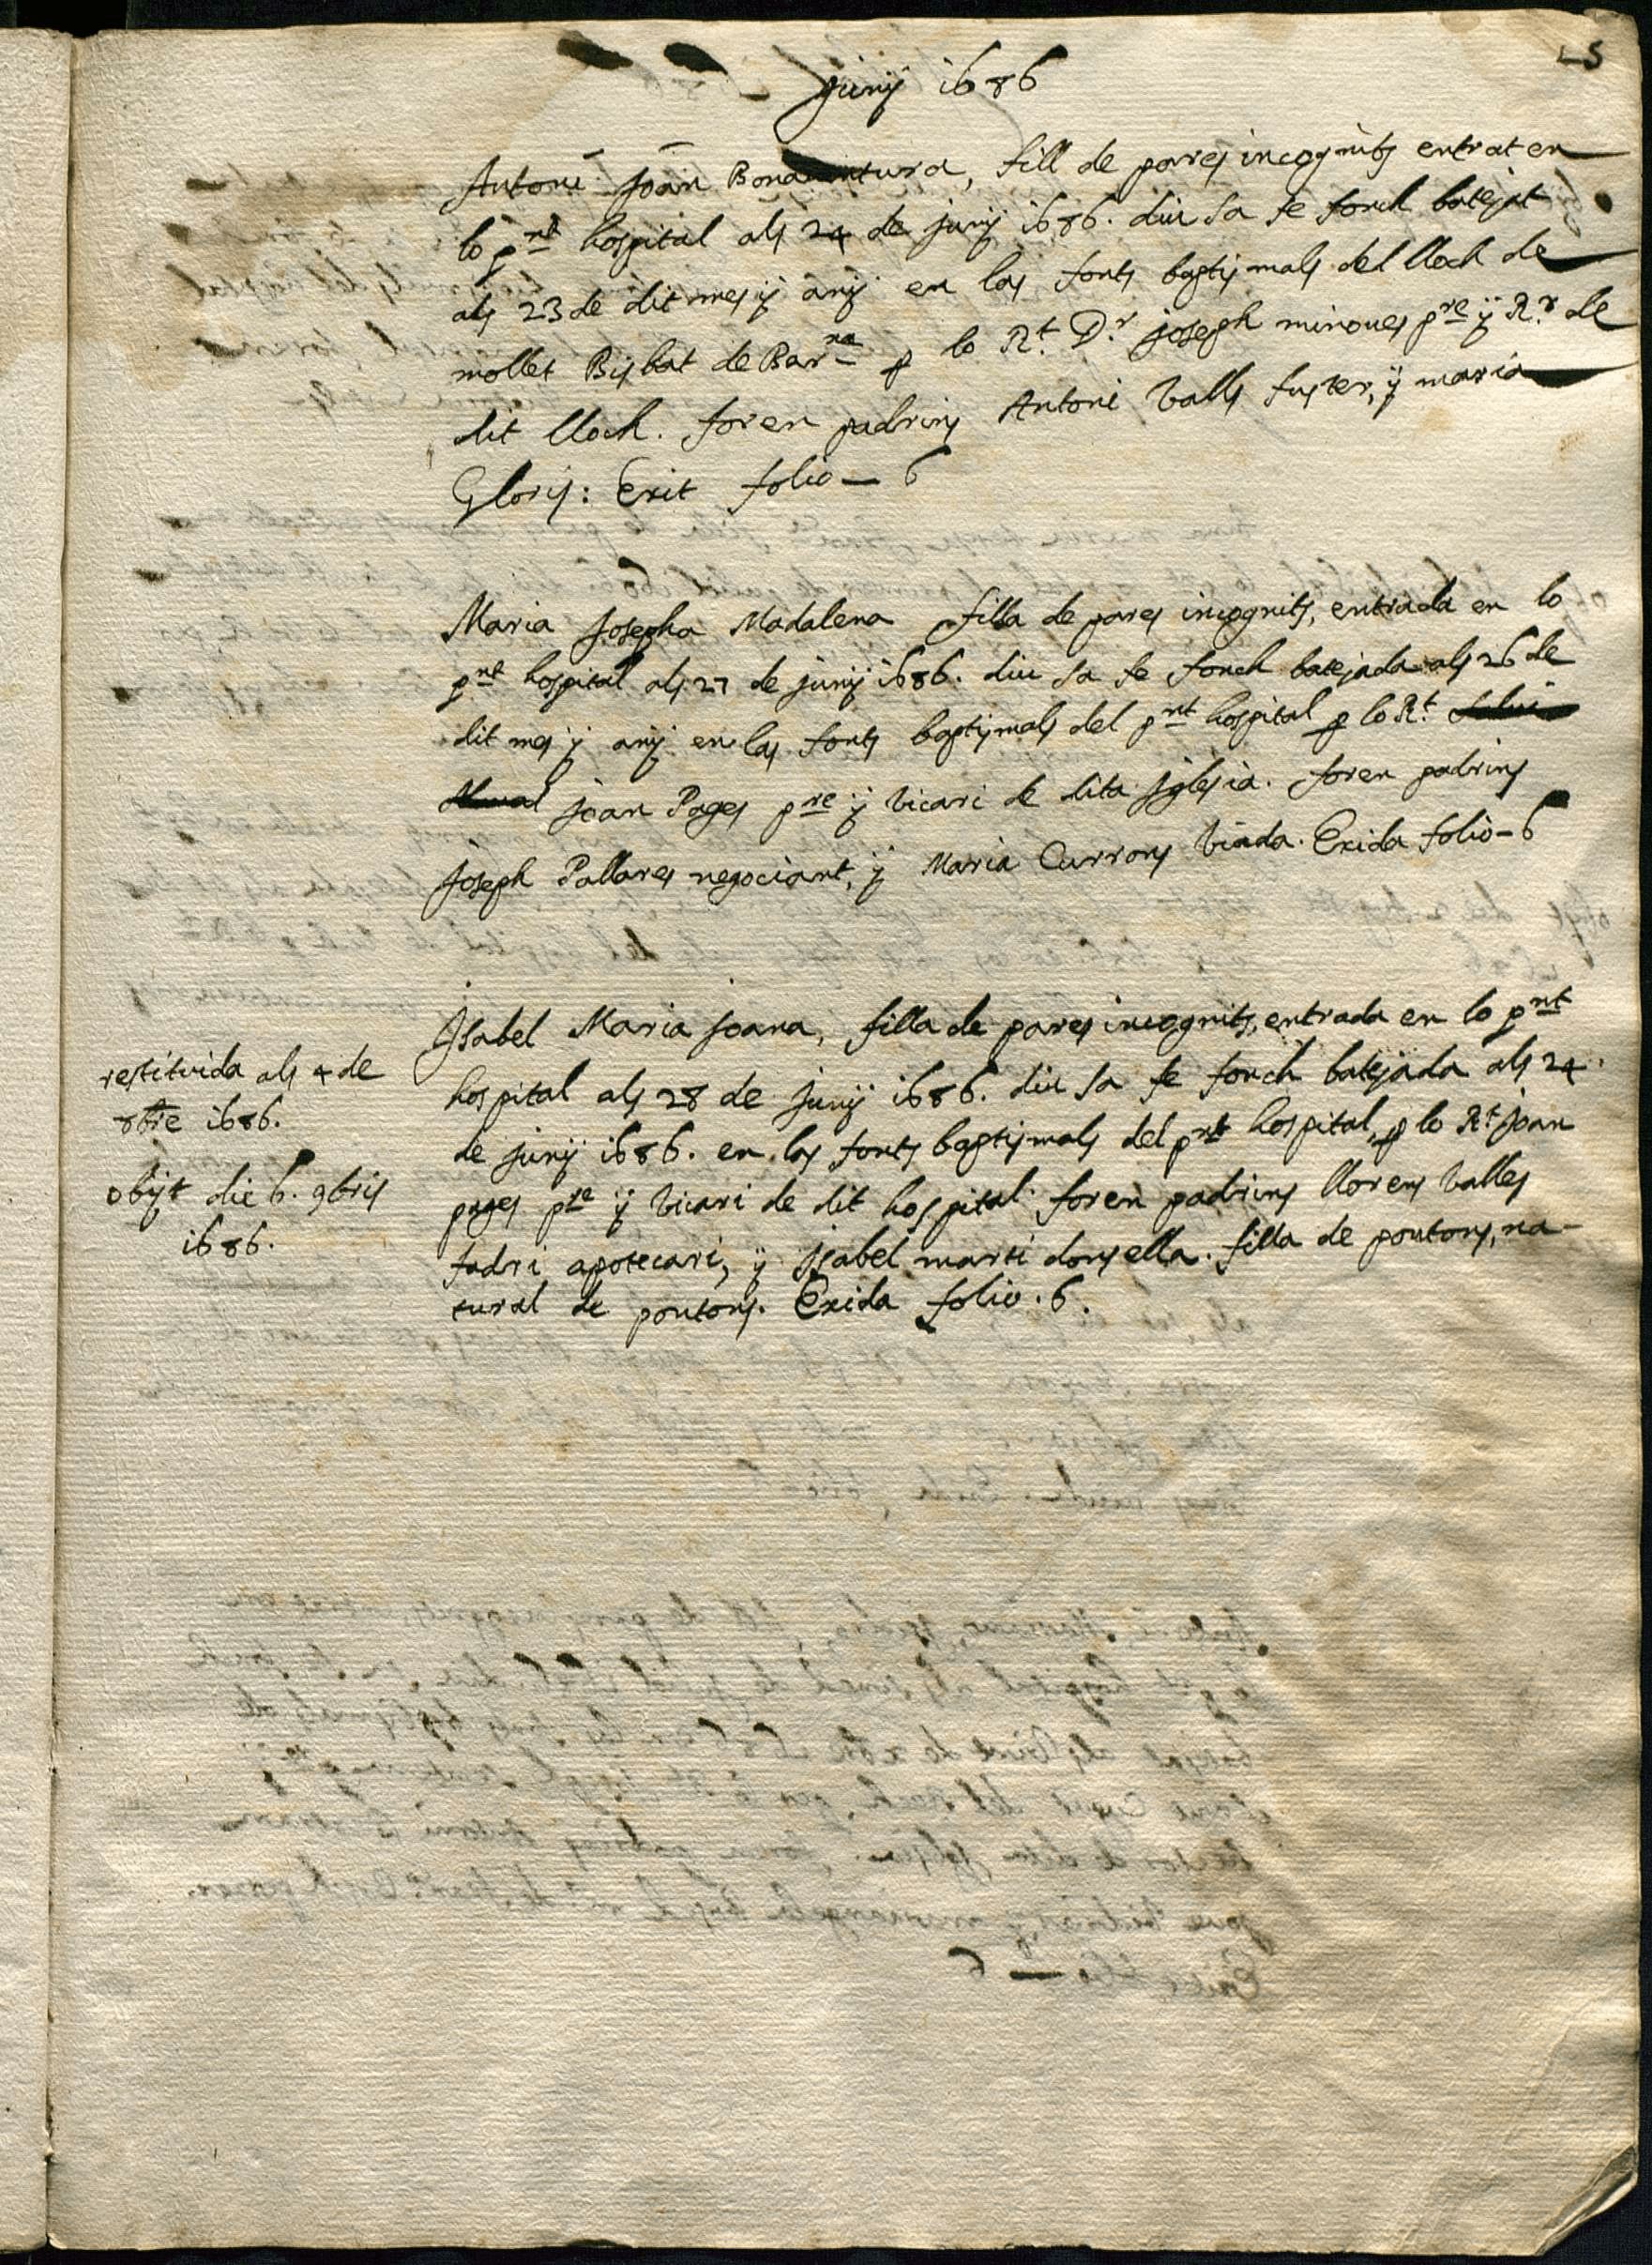 5
junÿ 1686
Antoni Joan Bonaventura, fill de pares incognits entrat en
lo pnt hospital als 24 de junÿ 1686. diu sa fe fonch batejat
als 23 de dit mes ÿ anÿ en las fonts baptismals del lloch de
mollet Bisbat de Barna p lo Rt. Dr joseph minoves pre ÿ Rr de
dit lloch. foren padrins Antoni Valls fuster, ÿ maria
Gloris: Exit folio — 6
Maria Josepha Madalena filla de pares incognits, entrada en lo
pnt hospital als 27 de junÿ 1686. diu sa fe fonch batejada als 26 de
dit mes ÿ anÿ en las fonts baptismals del pnt hospital p lo Rt.
joan Pages pre ÿ vicari de dita Iglesia. foren padrins
Joseph Pallares negociant, ÿ Maria Currons viuda. Exida folio - 6
Isabel Maria Joana, filla de pares incognits, entrada en lo pnt
hospital als 28 de junÿ 1686. diu sa fe fonch batejada als 24
de junÿ 1686. en las fonts baptismals del pnt hospital, p lo Rt joan
pages pre ÿ vicari de dit hospital. foren padrins llorens valles
fadri apotecari, ÿ Isabel marti donsella. filla de pontons, na-
tural de pontons. Exida folio. 6.
restituida als 4 de
8bre 1686.
obijt die 6. 9bris
1686.